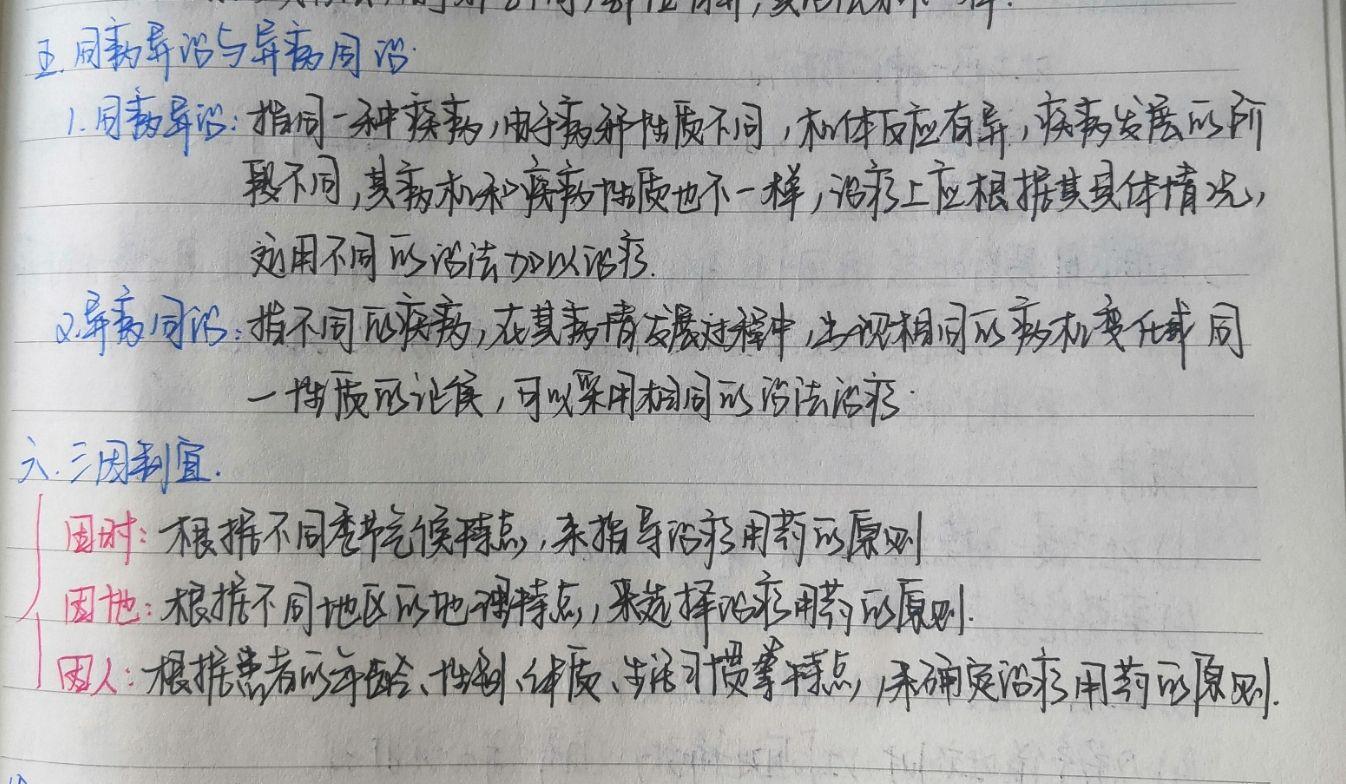 五.同病异治与异病同治.
1.同病异治:指同一种疾病,由于病邪性质不同,机体反应有异,疾病发展的阶
段不同,其病机和疾病性质也不一样,治疗上应根据其具体情况,
运用不同的治法加以治疗.
2.异病同治:指不同的疾病,在其病情发展过程中,出现相同的病机变化或同
一性质的证候,可以采用相同的治法治疗.
六.三因制宜.
因时:根据不同季节气候特点,来指导治疗用药的原则
因地:根据不同地区的地理特点,来选择治疗用药的原则.
因人:根据患者的年龄、性别、体质、生活习惯等特点,来确定治疗用药的原则.